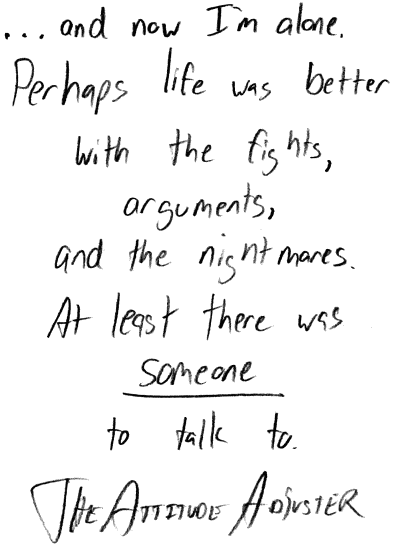 ... and now I'm alone.
Perhaps life was better
with the fights,
arguments,
and the nightmares.
At least there was
someone
to talk to.
THE ATTITUDE ADJUSTER